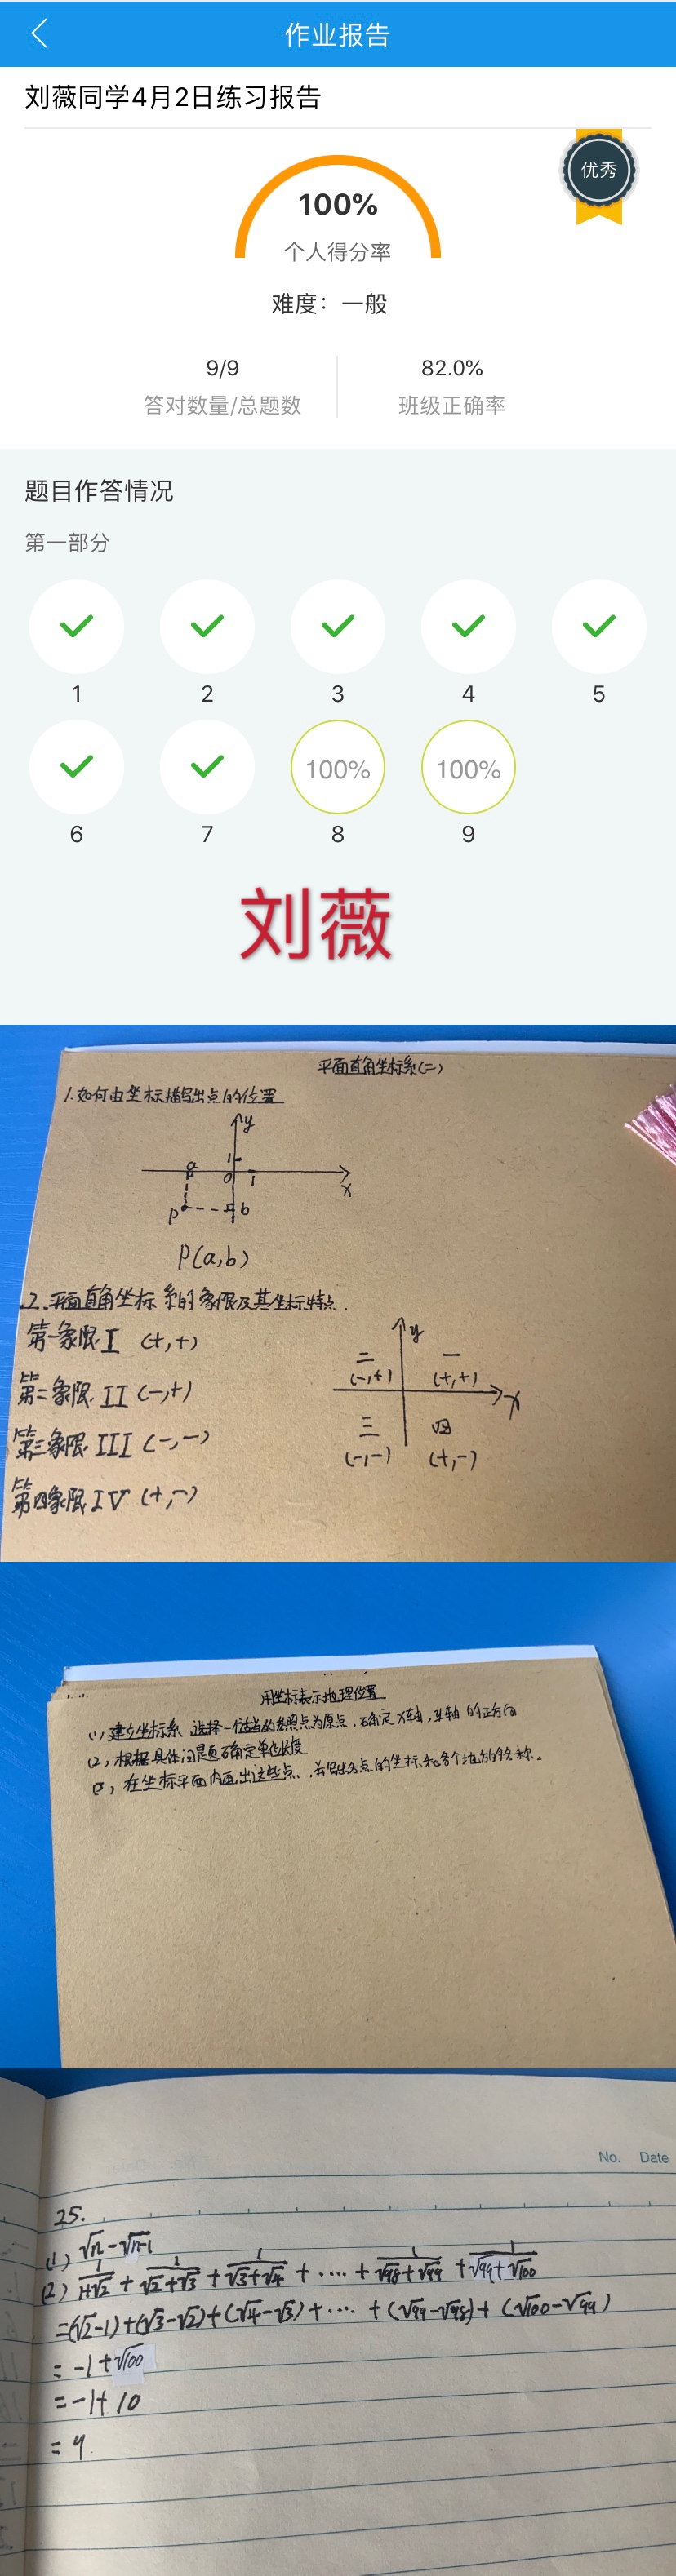 作业报告
刘薇同学4月2日练习报告
优秀
100%
个人得分率
难度：一般
9/9
82.0%
答对数量/总题数
班级正确率
题目作答情况
第一部分
1 2 3 4 5
100% 100%
6 7 8 9
刘薇
平面直角坐标系(二)
1.如何由坐标描写出点的位置
y
a 1
0 1 x
P b
P(a,b)
2.平面直角坐标系的象限及其坐标特点.
第一象限 I (+,+)
第二象限 II (-,+)
第三象限 III (-,-)
第四象限 IV (+,-)
y
二 一
(-,+) (+,+)
x
三 四
(-,-) (+,-)
用坐标表示地理位置
(1) 建立坐标系,选择一个适当的参照点为原点,确定x轴,y轴的正方向
(2) 根据具体问题确定单位长度
(3) 在坐标平面内画出这些点,并写出各点的坐标和各个地方的名称。
No. Date
25.
(1) √n-√n-1
(2) 1/1+√2 + 1/√2+√3 + 1/√3+√4 + ···· + 1/√98+√99 + 1/√99+√100
=(√2-1)+(√3-√2)+(√4-√3)+···+(√99-√98)+(√100-√99)
=-1+√100
=-1+10
=9